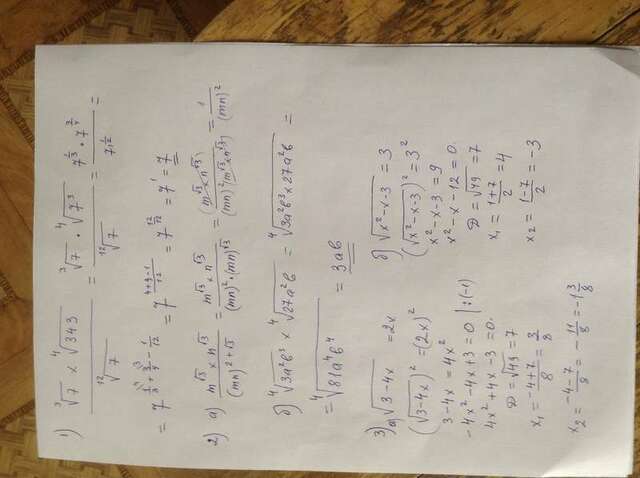 1) (∛7 × ⁴√343) / ¹²√7 = (∛7 · ⁴√7³) / ¹²√7 = (7^(1/3) · 7^(3/4)) / 7^(1/12) =
= 7^(1/3 + 3/4 − 1/12) = 7^((4+9−1)/12) = 7^(12/12) = 7¹ = 7
2) а) (m^√3 × n^√3) / (mn)^(2+√3) = (m^√3 × n^√3) / ((mn)² · (mn)^√3) = (m^√3 × n^√3) / ((mn)² (m^√3 × n^√3)) = 1 / (mn)²
б) ⁴√(3a²b³) × ⁴√(27a²b) = ⁴√(3a²b³ × 27a²b) =
= ⁴√(81a⁴b⁴) = 3ab
3) а) √(3−4x) = 2x
(√(3−4x))² = (2x)²
3−4x = 4x²
−4x²−4x+3 = 0 | : (−1)
4x²+4x−3 = 0
D = √49 = 7
x₁ = (−4+7)/8 = 3/8
x₂ = (−4−7)/8 = −11/8 = −1 3/8
б) √(x²−x−3) = 3
(√(x²−x−3))² = 3²
x²−x−3 = 9
x²−x−12 = 0
D = √49 = 7
x₁ = (1+7)/2 = 4
x₂ = (1−7)/2 = −3